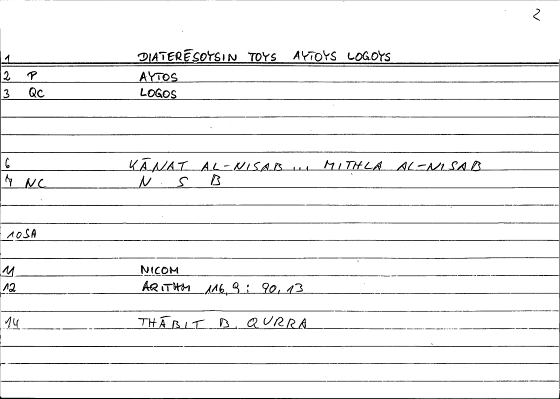 2
1 DIATERĒSOYSIN TOYS AYTOYS LOGOYS
2 P AYTOS
3 QC LOGOS
6 KĀNAT AL-NISAB ... MITHLA AL-NISAB
7 NC N S B
10 SA
11 NICOM
12 ARITHM 116,9 : 90,13
14 THĀBIT B. QURRA